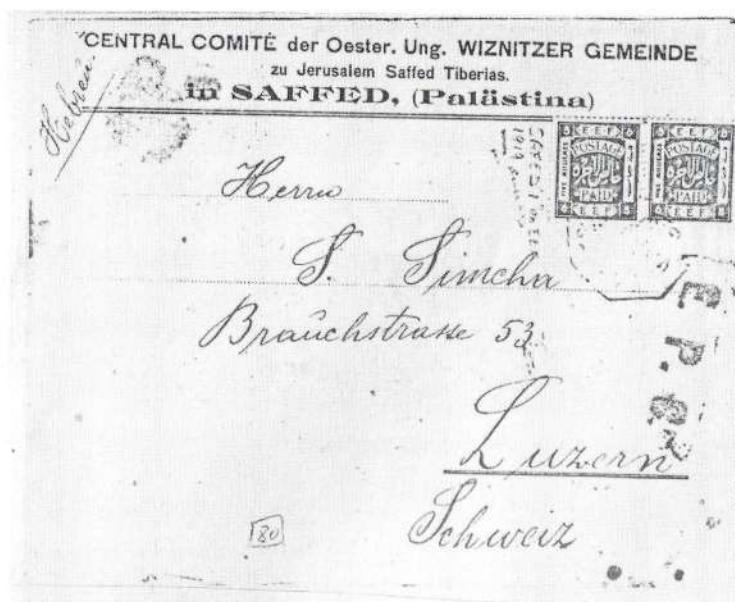 CENTRAL COMITÉ der Oester. Ung. WIZNITZER GEMEINDE
zu Jerusalem Saffed Tiberias.
in SAFFED, (Palästina)
E.E.F.
POSTAGE
PAID
E.E.F.
FIVE MILLIEMES
E.E.F.
POSTAGE
PAID
E.E.F.
FIVE MILLIEMES
SAFED
1919
Herrn
S. Simcha
Brauchstrasse 53
Luzern
Schweiz
80